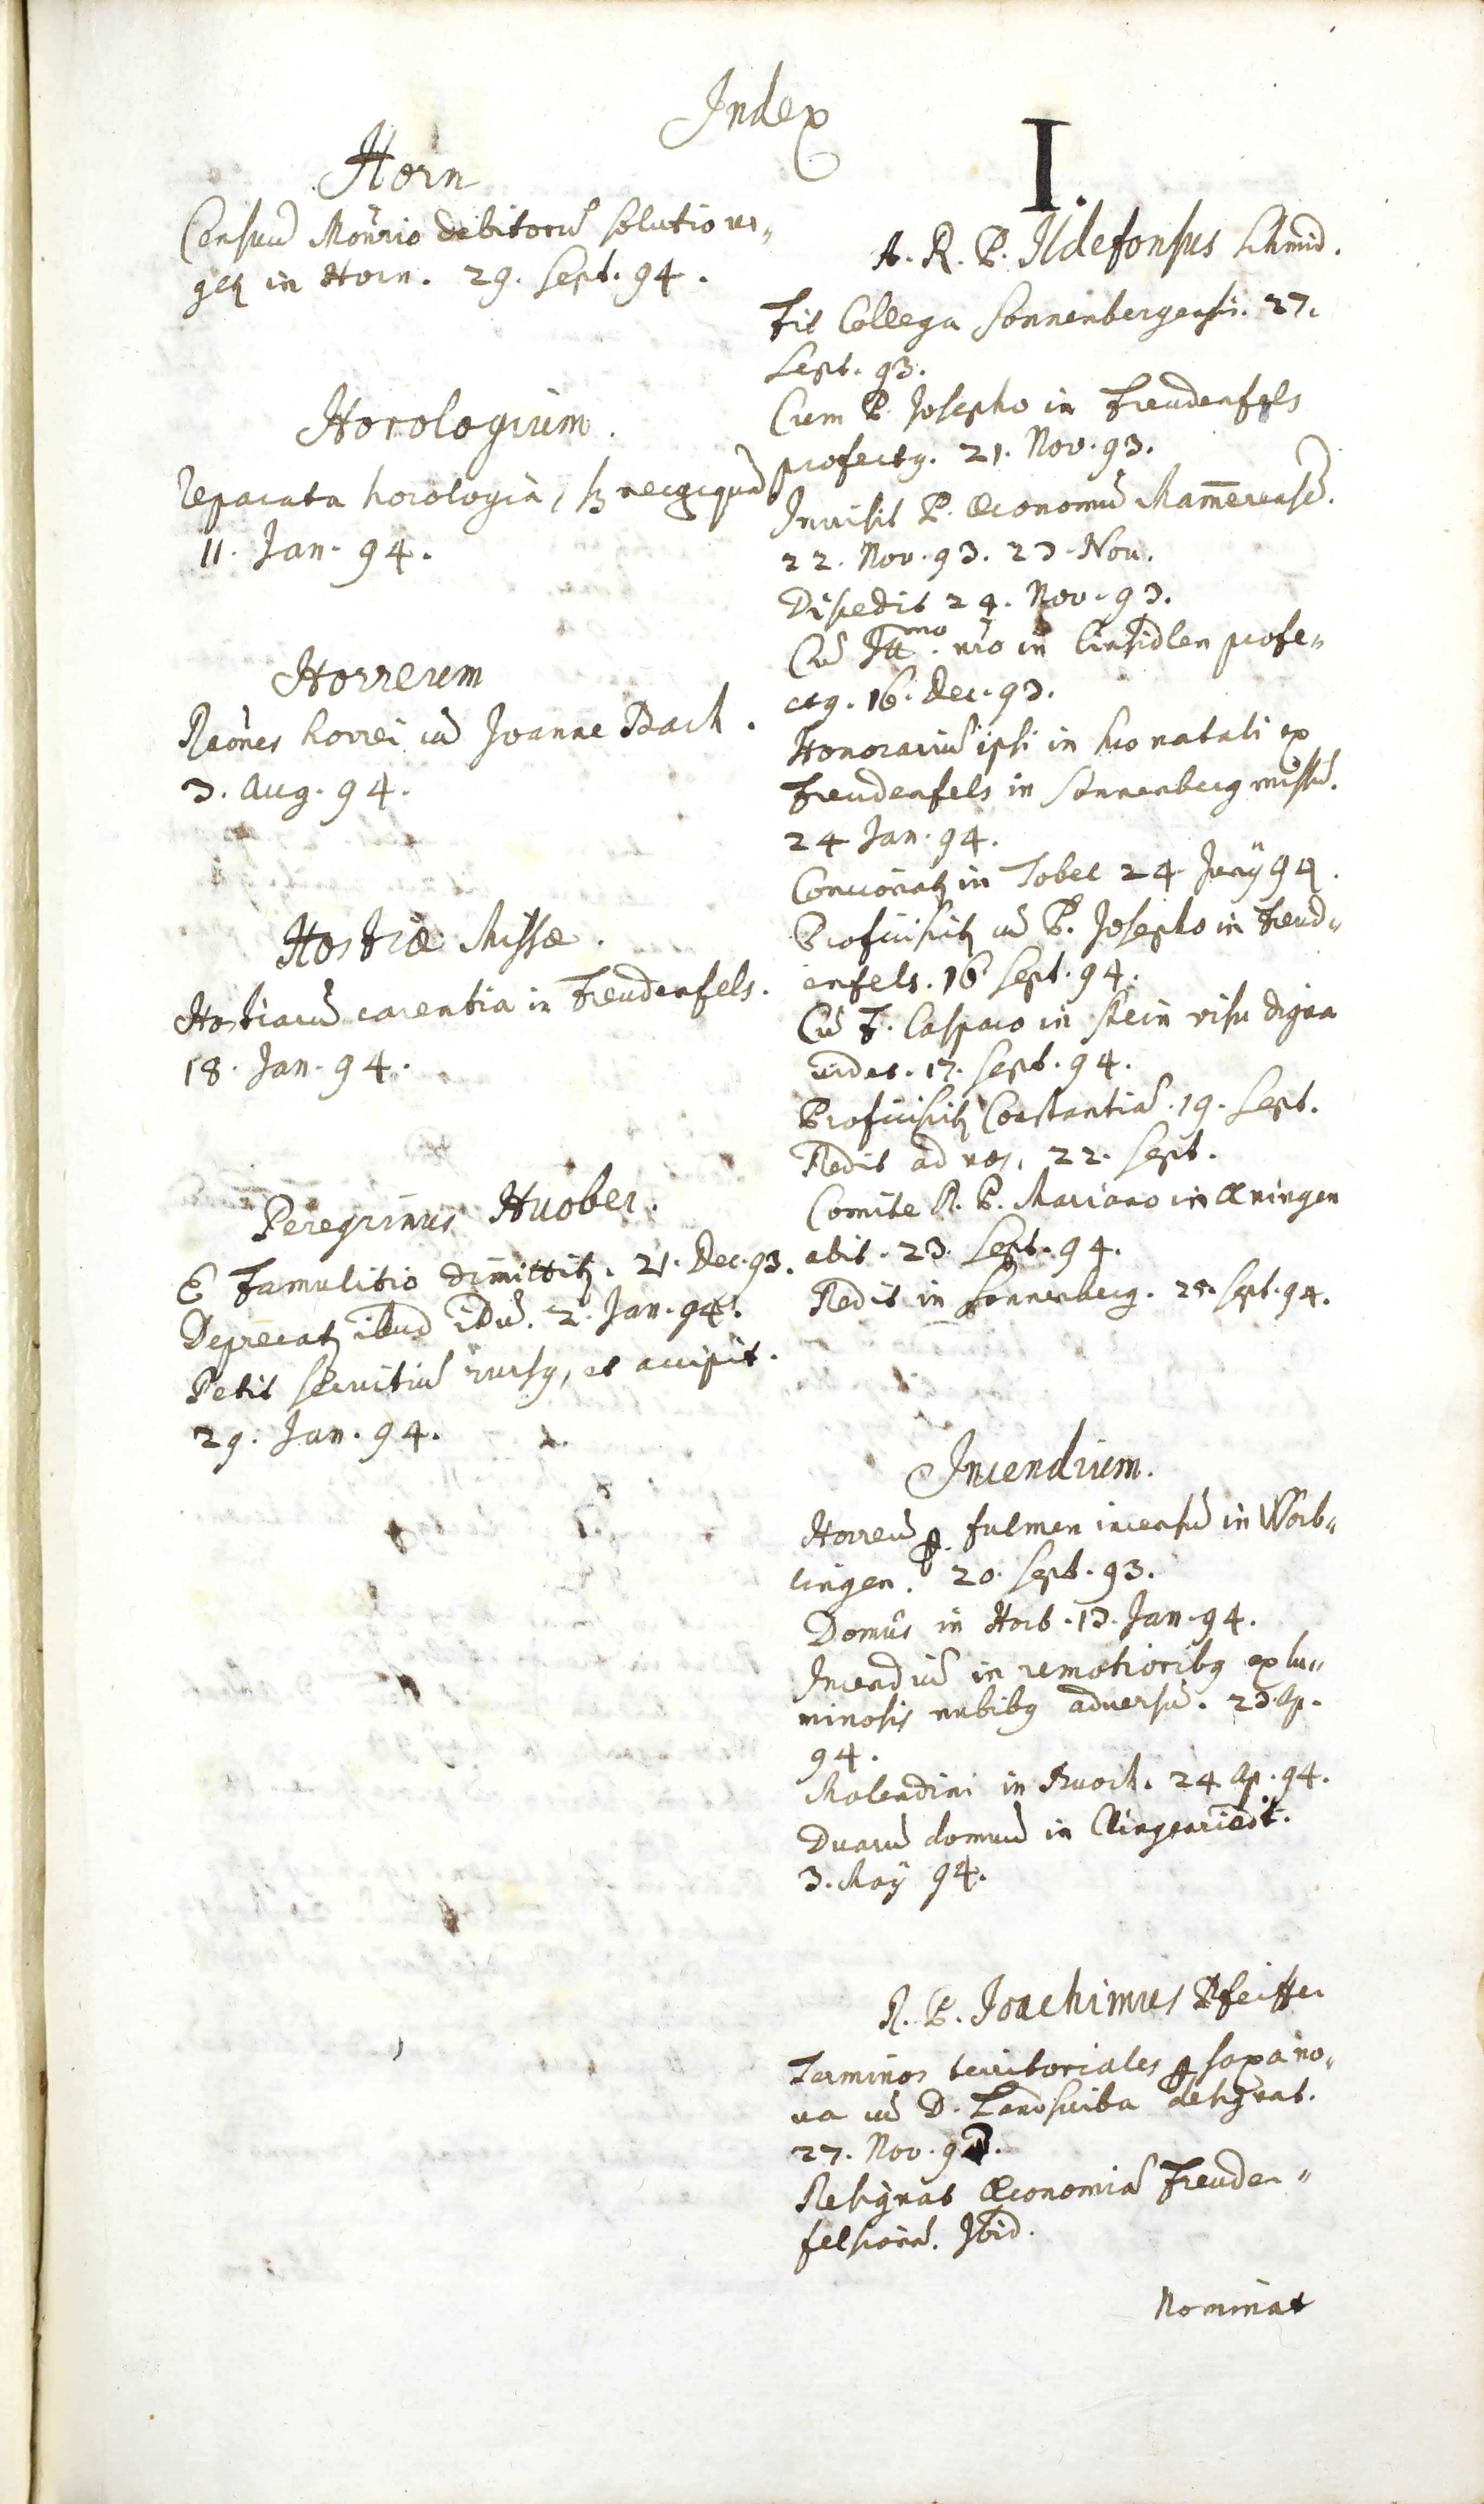 Index
Horn
Censuū Mōrio debitorū solutio ur„
getꝫ in Horn. 29. Sept. 94.
Horologium.
Reparata horologia, sꝫ necquequā
11. Jan. 94.
Horreum
Raōnes horrei cū Joanne Bach.
3. Aug. 94.
Hostiæ Missæ.
Hostiarū carentia in Freudenfels.
18. Jan. 94.
Peregrinus Huober.
E famulitio dimittitꝫ. 21. Dec. 93.
Deprecatꝫ 2. Jan. 94.
Petit servitiū rursꝯ, et accipit.
29. Jan. 94.
I.
A. R. P. Ildefonsus Schmid.
Fit Collega Sonnenbergensis. 27.
Sept. 93.
Cum P. Josepho in Freudenfels
profectꝯ. 21. Nov. 93.
Invisit P. Œconomū Mam̄erensē.
22. Nov. 93. 23. Nov.
Discedit 24. Nov. 93.
Cū Illmo. nr̄o in Einsidlen profe„
ctꝯ. 16. Dec. 93.
Honorariū ipsi in suo natali ex
Freudenfels in Sonnenberg missū.
24 Jan. 94.
Concionatꝫ in Tobel 24 Junÿ 94.
Proficiscitꝫ cū P. Josepho in Freud„
enfels. 16. Sept. 94.
Cū F. Casparo in Stein visu digna
videt. 17. Sept. 94.
Proficiscitꝫ Constantiā. 19. Sept.
Redit ad nos, 22. Sept.
Comite R. P. Mariano in Œningen
abit. 23. Sept. 94.
Redit in Sonnenberg. 25. Sept. 94.
Incendium.
Horreū ꝑ fulmen incensū in Worb„
lingen. 20. Sept. 93.
Domûs in Horb. 13. Jan. 94.
Incendiū in remotioribꝯ ex lu„
minosis nubibꝯ adversū. 23. Ap.
94.
Molendini in 24. Ap. 94.
Duarū domuū in Clingenriedt.
3. Maÿ 94.
R. P. Joachimus Pfeiffer
Terminos territoriales ꝑ saxa no„
va cū D. Landscriba designat.
27. Nov. 93.
Resignat Œconomiā Freuden„
felsianā. Ibid.
Nominat